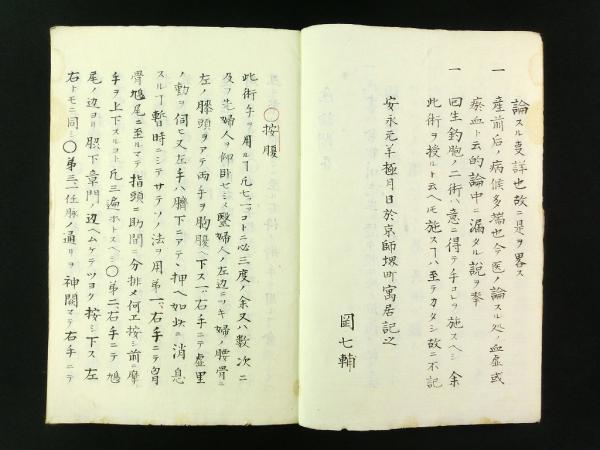 論スル㕝詳也故ニ是ヲ畧ス
一 産前后ノ病候多端也今医ノ論スル処ノ血虚或
瘀血ト云的論中ニ漏タル説ヲ挙
一 回生鈎胞ノ二術ハ意ニ得テ手コレヲ施スヘシ余
此術ヲ授ルト云ヘトモ施スヿハ至テカタシ故ニ不記
安永元年極月日於京師堺町寓居記之
岡七輔
〇按腹
此術手ヲ用ルヿ凡七ツコトニ必三度ノ余又ハ数次ニ
及フ先婦人ヲ仰臥セシメ医婦人ノ左辺ニツキ婦ノ腰骨ニ
左ノ膝頭ヲアテ両手ヲ胸腹ヘ下ス一ハ右手ニテ虚里
ノ動ヲ伺ヒ又左手ハ臍下ニアテ押ヘ如此ニ消息
スルヿ暫時ニシテサテソノ法ヲ用第一ハ右手ニテ胃
骨鳩尾ニ至ルマテ指頭ニ肋間ニ分排メ何エ按シ前ニ摩
手ヲ上下スルヿ凡三遍ホトスヘシ〇第二右手ニテ鳩
尾ノ辺ヨリ䏶下章門ノ辺ヘムケテツヨク按シ下ス左
右トモニ同シ〇第三ハ任脉ノ通リヲ神闕マテ右手ニテ